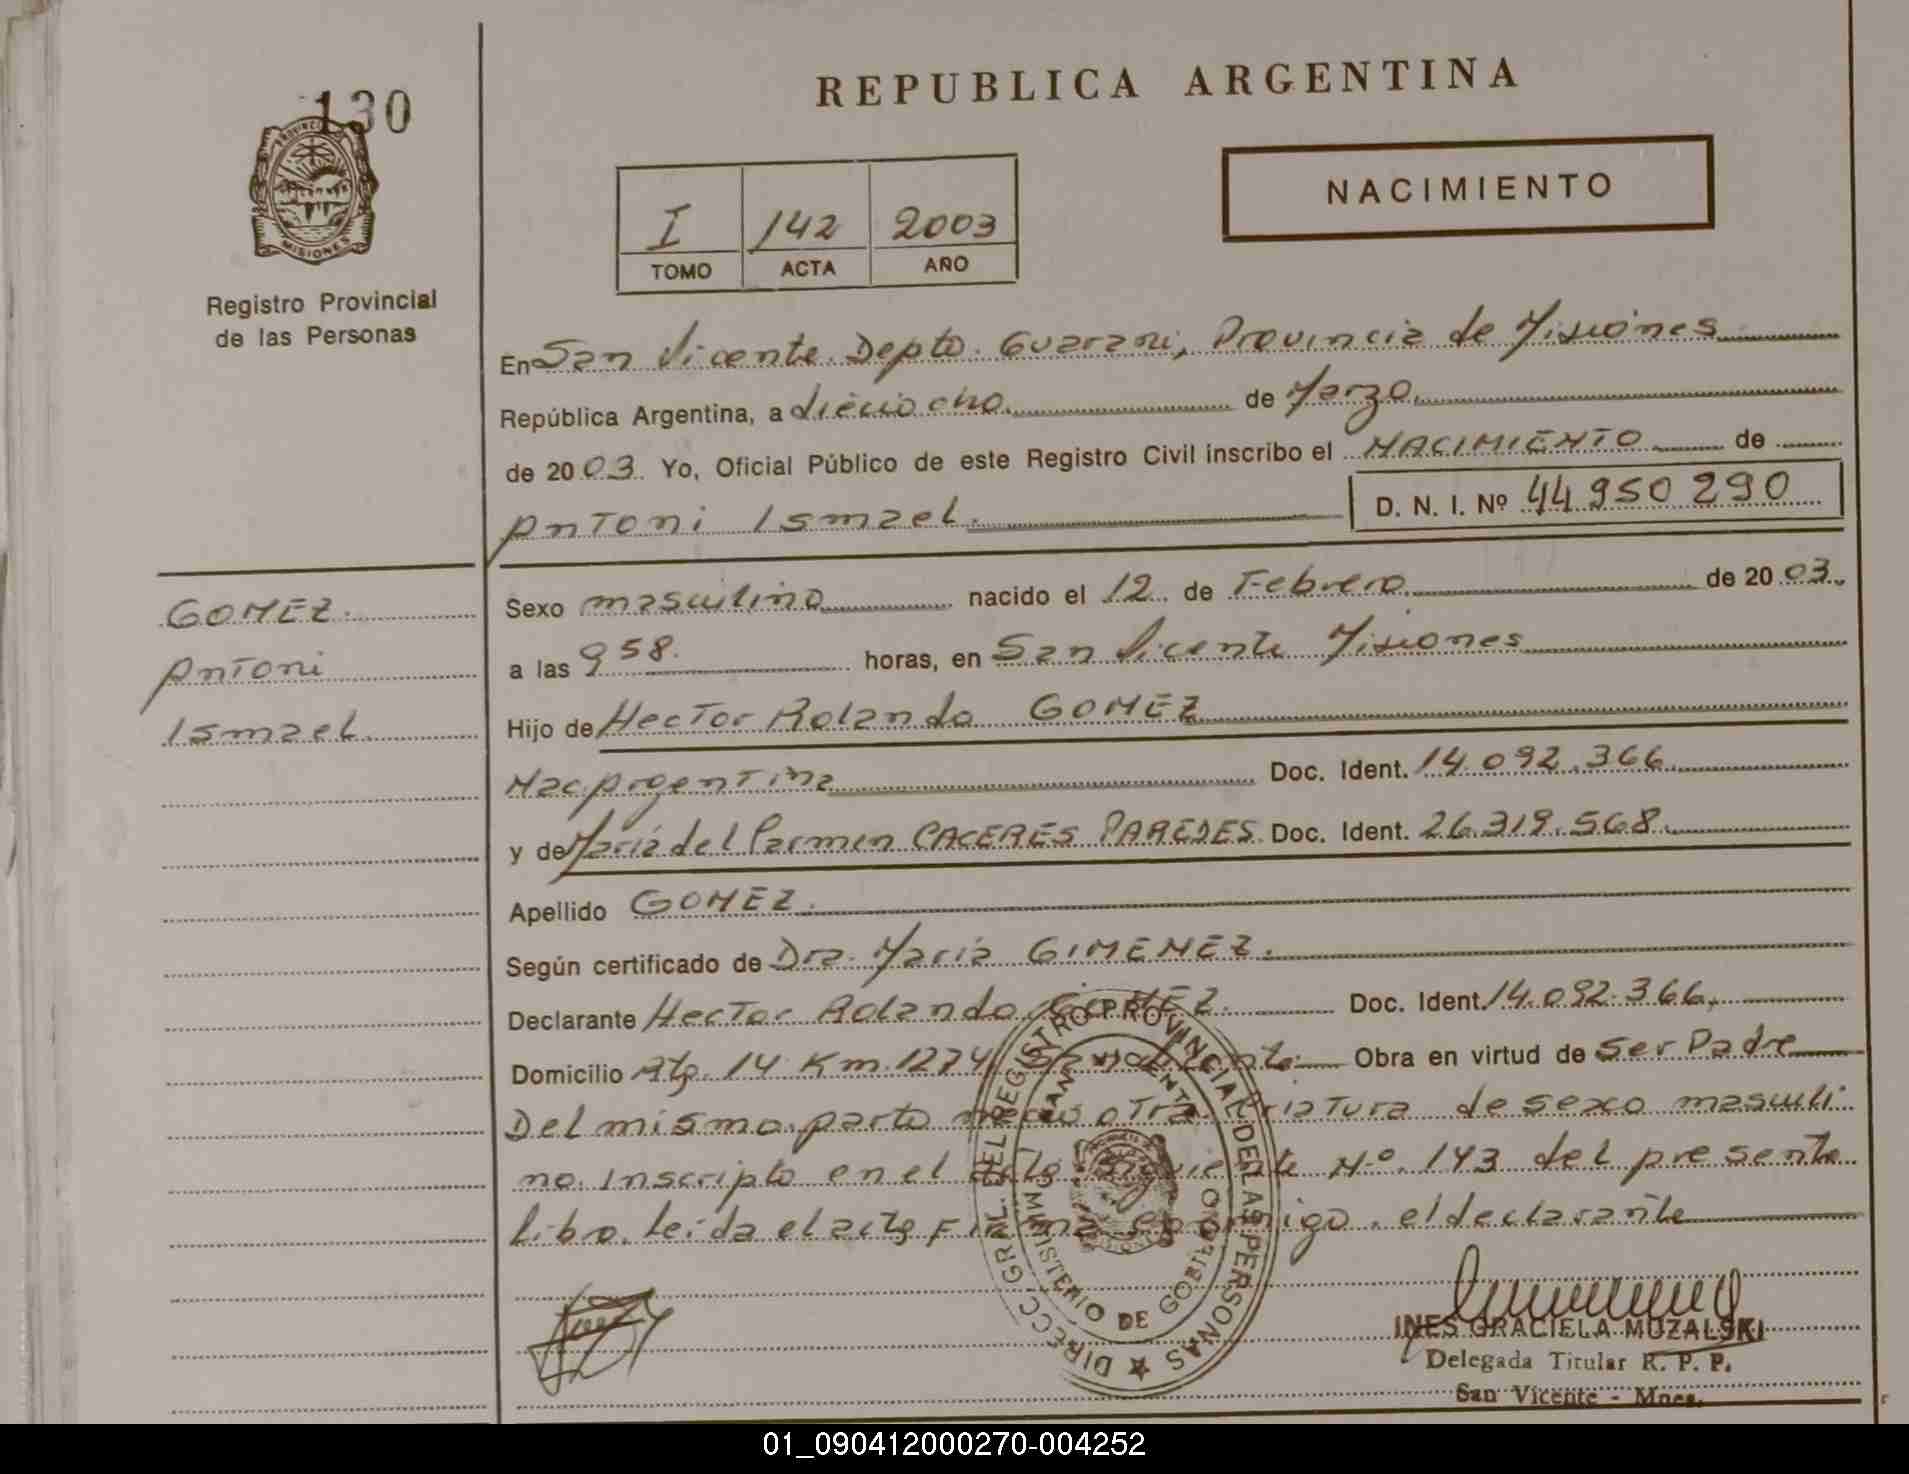 130
PROVINCIA
MISIONES
Registro Provincial
de las Personas
REPUBLICA ARGENTINA
NACIMIENTO
I 142 2003
TOMO ACTA AÑO
En San Vicente Depto. Guarani, Provincia de Misiones
República Argentina, a dieciocho. de Marzo.
de 20 03. Yo, Oficial Público de este Registro Civil inscribo el NACIMIENTO de
Antoni Ismael. D. N. I. Nº 44 950 290
GOMEZ.
Antoni
Ismael.
Sexo masculino nacido el 12 de Febrero de 20 03.
a las 9 58. horas, en San Vicente Misiones
Hijo de Hector Rolando GOMEZ
Nac. Argentina Doc. Ident. 14.092.366
y de María del Carmen CACERES PAREDES Doc. Ident. 26.319.568.
Apellido GOMEZ.
Según certificado de Dra. María GIMENEZ.
Declarante Hector Rolando GOMEZ. Doc. Ident. 14.092.366,
Domicilio Km. 1274 San Vicente Obra en virtud de Ser Padre
Del mismo parto nacio otra criatura de sexo masculi
no. inscripto en el acta siguiente N.º 143 del presente
libro. Leída el acta Firma conmigo. el declarante
DIRECC. GRL. DEL REGISTRO PROVINCIAL DE LAS PERSONAS
SAN VICENTE
MINISTERIO DE GOBIERNO
INES GRACIELA MUZALSKI
Delegada Titular R. P. P.
San Vicente - Mnes.
01_090412000270-004252